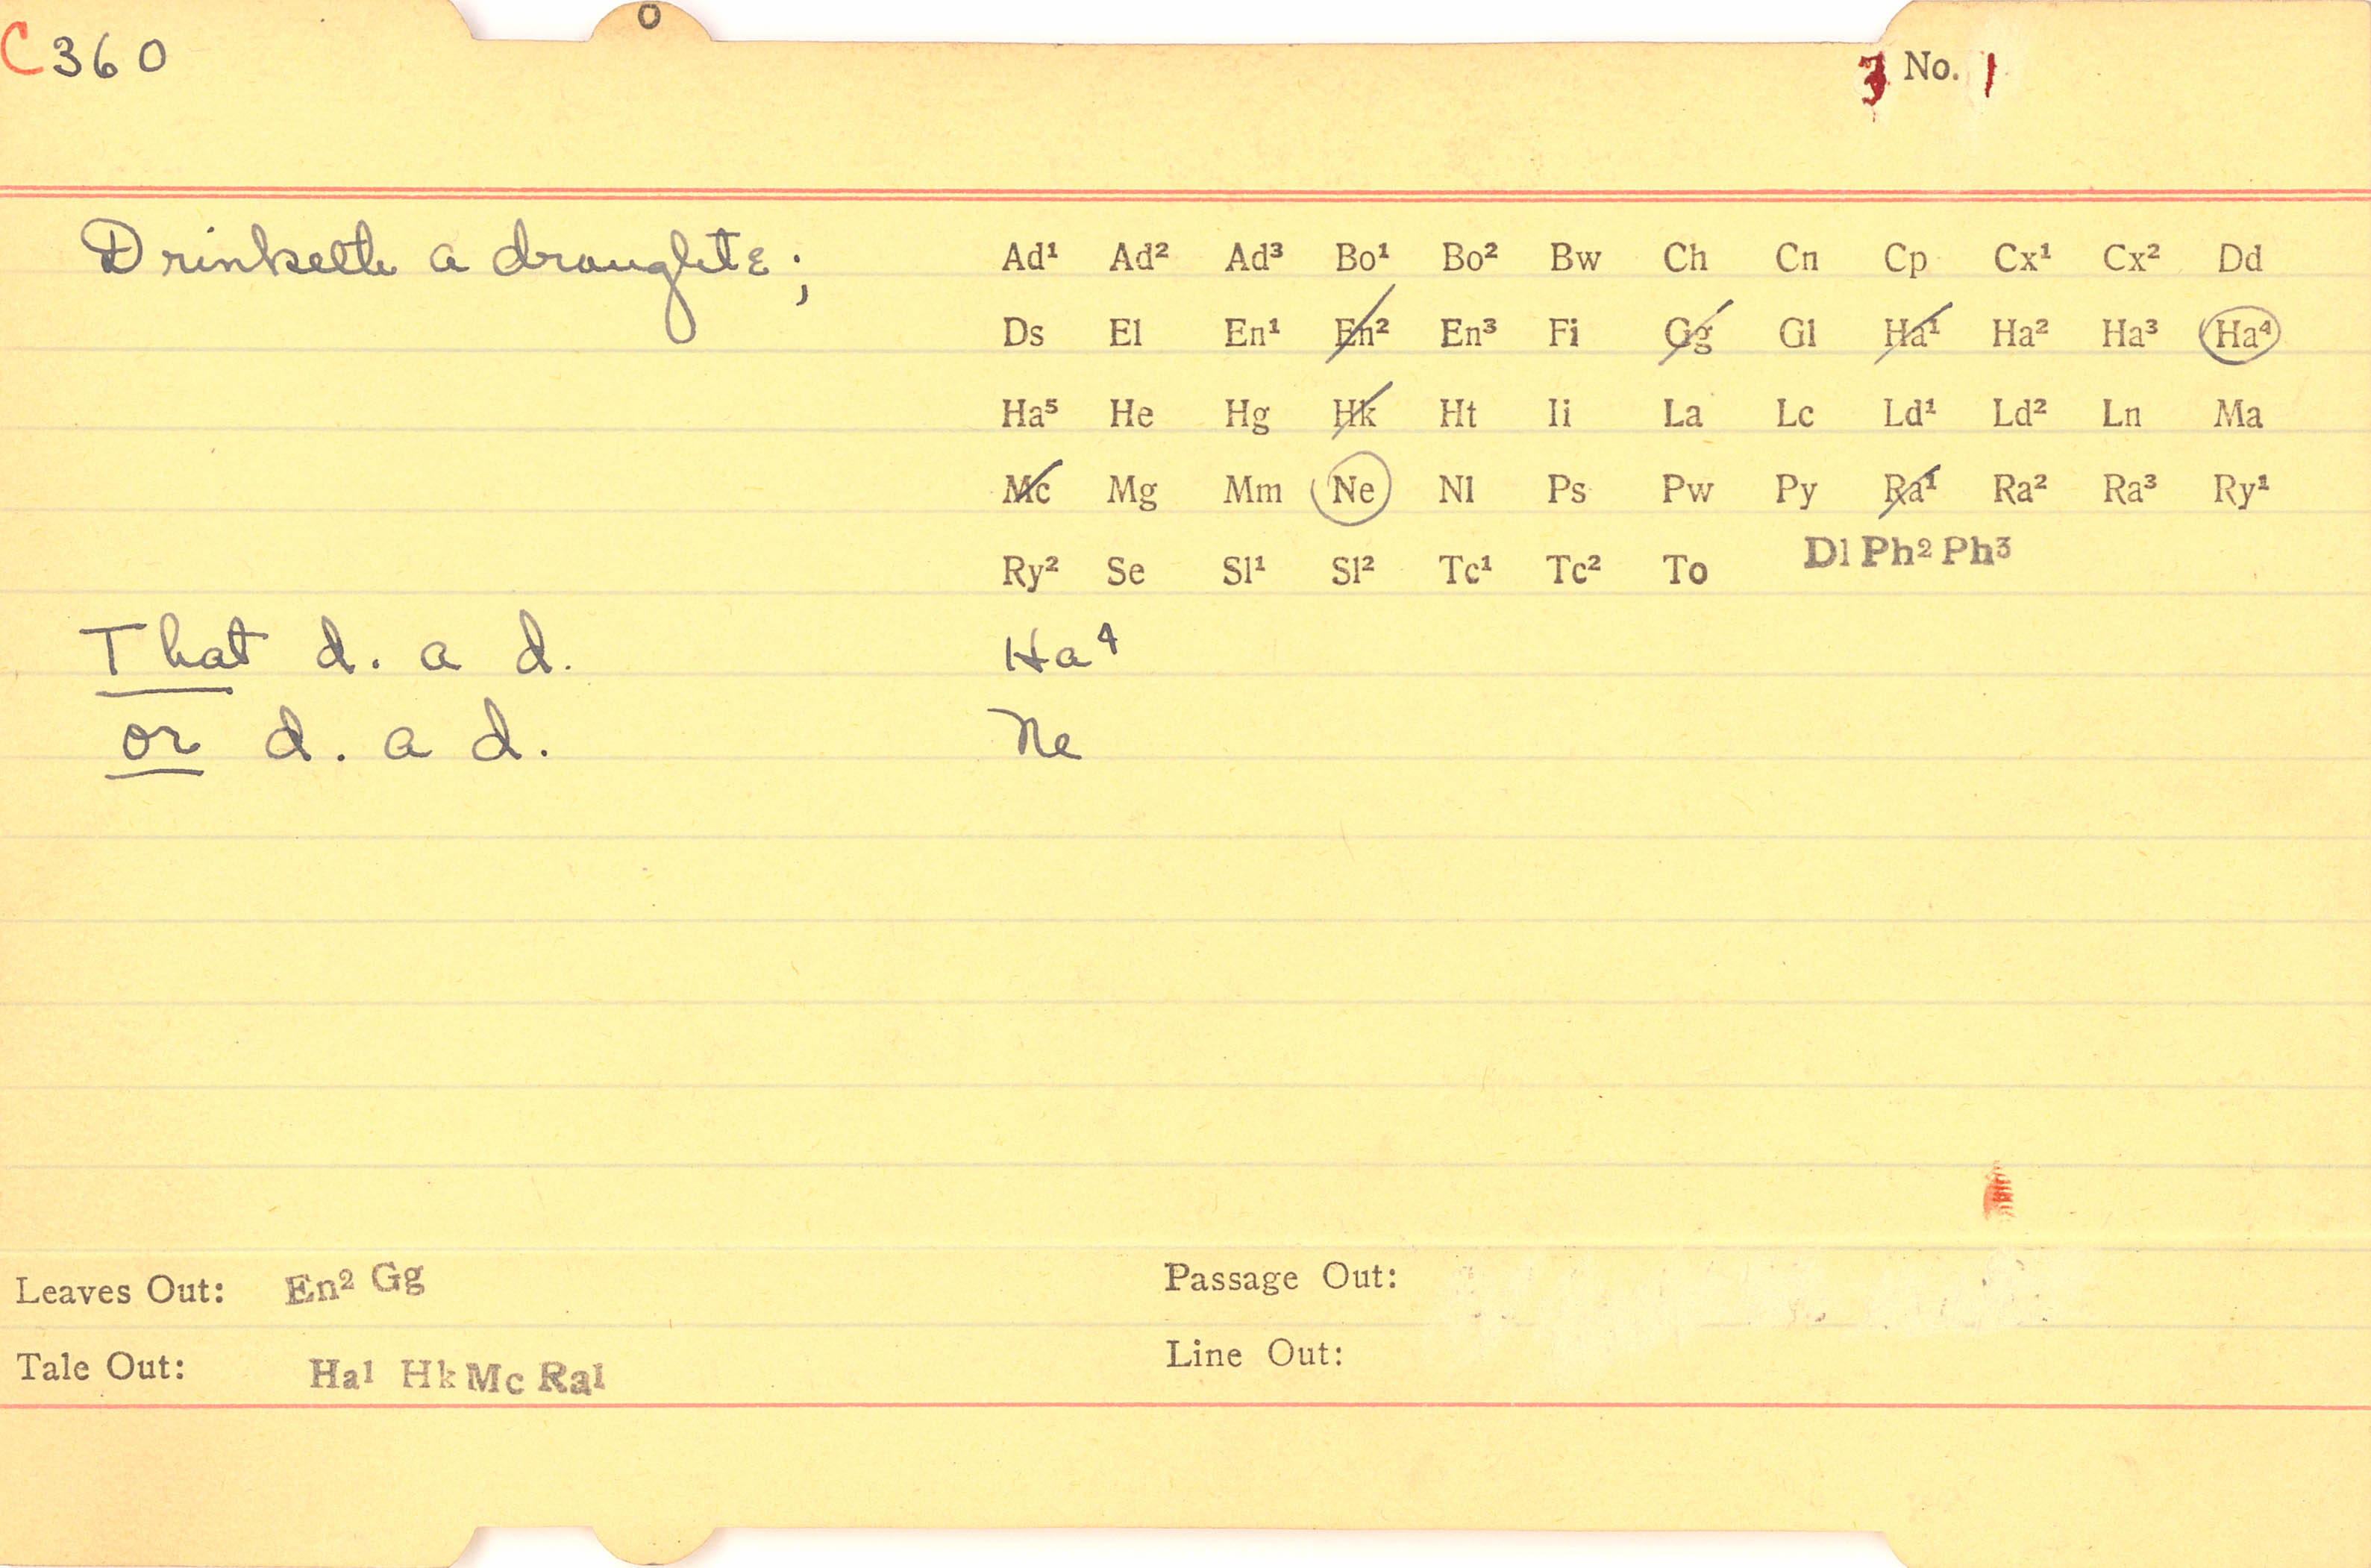 o
C360
3 No. 1
Drinketh a draughte;
Ad¹ Ad² Ad³ Bo¹ Bo² Bw Ch Cn Cp Cx¹ Cx² Dd
Ds El En¹ En² En³ Fi Gg Gl Ha¹ Ha² Ha³ Ha⁴
Ha⁵ He Hg Hk Ht Ii La Lc Ld¹ Ld² Ln Ma
Mc Mg Mm Ne Nl Ps Pw Py Ra¹ Ra² Ra³ Ry¹
Ry² Se Sl¹ Sl² Tc¹ Tc² To Dl Ph² Ph³
That d. a d. Ha⁴
or d. a d. Ne
Leaves Out: En² Gg
Passage Out:
Tale Out: Ha¹ Hk Mc Ra¹
Line Out: